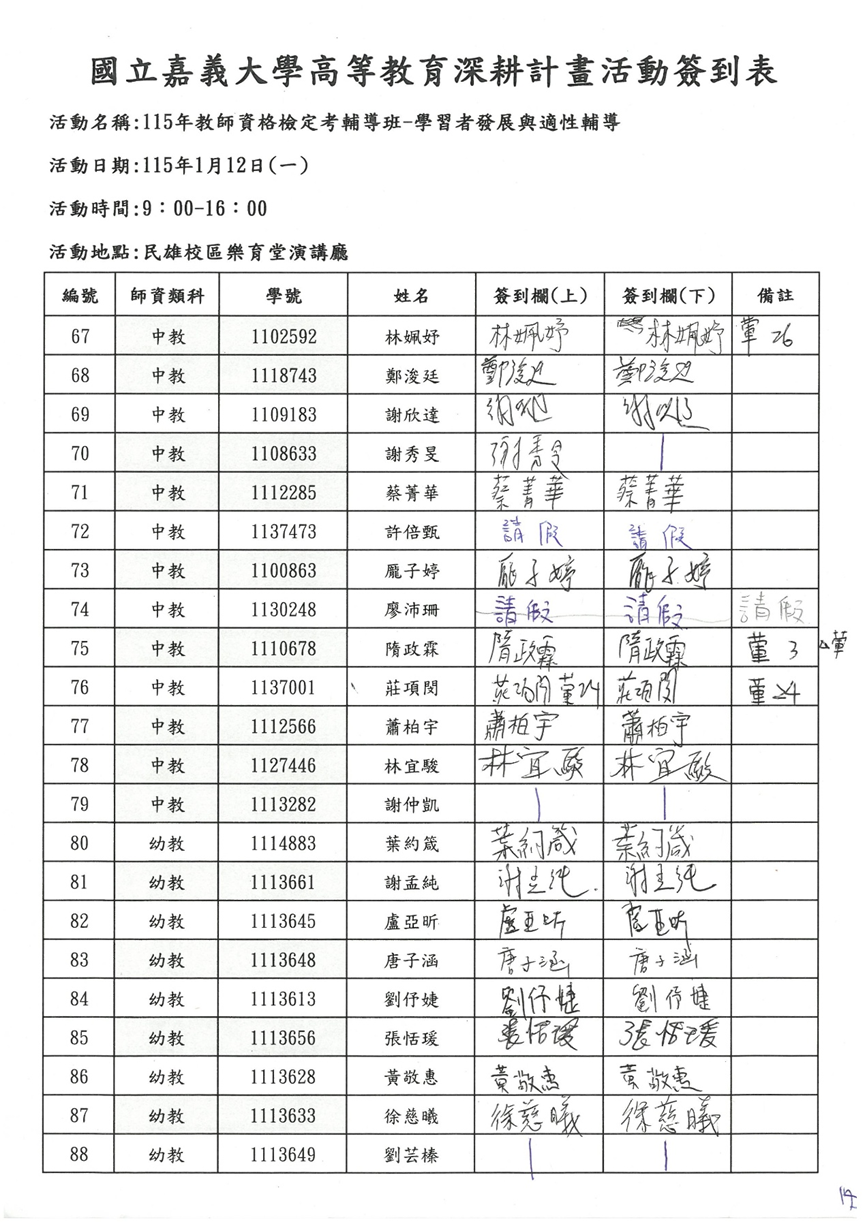 國立嘉義大學高等教育深耕計畫活動簽到表
活動名稱:115年教師資格檢定考輔導班-學習者發展與適性輔導
活動日期:115年1月12日(一)
活動時間:9：00-16：00
活動地點:民雄校區樂育堂演講廳
編號 師資類科 學號 姓名 簽到欄(上) 簽到欄(下) 備註
67 中教 1102592 林姵妤 林姵妤 林姵妤 葷 26
68 中教 1118743 鄭浚廷 鄭浚廷 鄭浚廷
69 中教 1109183 謝欣達
70 中教 1108633 謝秀旻
71 中教 1112285 蔡菁華 蔡菁華 蔡菁華
72 中教 1137473 許倍甄 請假 請假
73 中教 1100863 龐子婷 龐子婷 龐子婷
74 中教 1130248 廖沛珊 請假 請假 請假
75 中教 1110678 隋政霖 隋政霖 隋政霖 葷 3
76 中教 1137001 莊項閔 莊項閔 葷24 莊項閔 葷 24
77 中教 1112566 蕭柏宇 蕭柏宇 蕭柏宇
78 中教 1127446 林宜駿 林宜駿 林宜駿
79 中教 1113282 謝仲凱
80 幼教 1114883 葉約箴 葉約箴 葉約箴
81 幼教 1113661 謝孟純 謝孟純 謝孟純
82 幼教 1113645 盧亞昕 盧亞昕 盧亞昕
83 幼教 1113648 唐子涵 唐子涵 唐子涵
84 幼教 1113613 劉伃婕 劉伃婕 劉伃婕
85 幼教 1113656 張恬瑗 張恬瑗 張恬瑗
86 幼教 1113628 黃敬惠 黃敬惠 黃敬惠
87 幼教 1113633 徐慈曦 徐慈曦 徐慈曦
88 幼教 1113649 劉芸榛
14